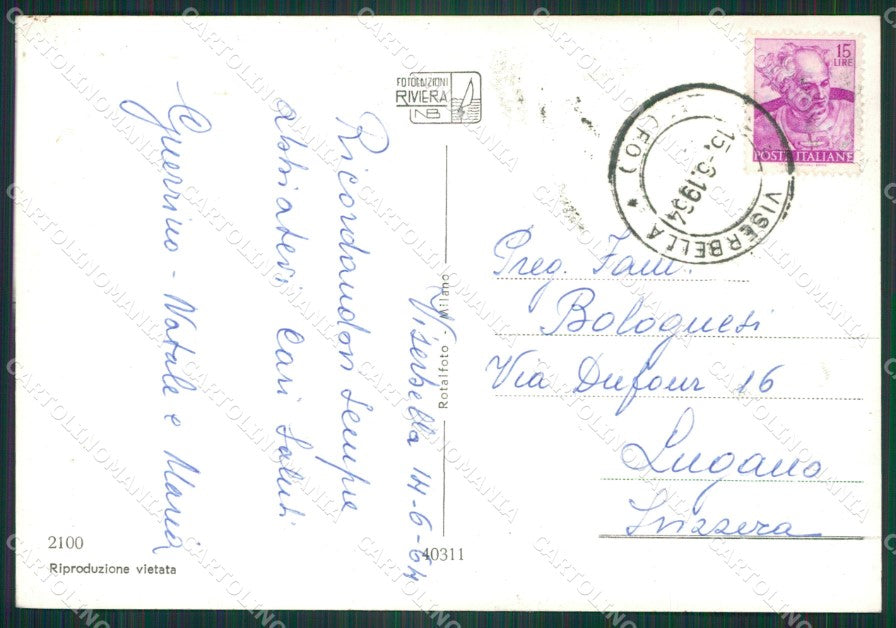 FOTOEDIZIONI
RIVIERA
NB
15
LIRE
POSTE ITALIANE
VISERBELLA (FO)
15.-6.1964
Viserbella 14-6-64
Ricordandovi sempre
abbiatevi cari saluti
Guerrino - Natale e Maria
Preg. Fam.
Bolognesi
Via Dufour 16
Lugano
Svizzera
Rotalfoto - Milano
2100
Riproduzione vietata
40311
CARTOLINOMANIA